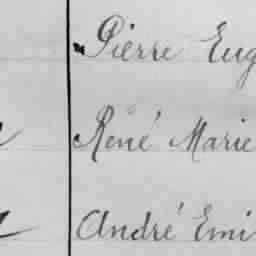 Pierre Eug
René Marie
André Emi